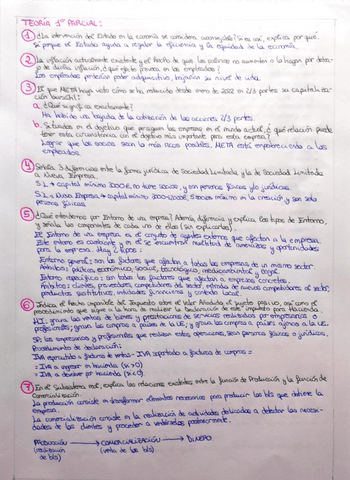 TEORÍA 1º PARCIAL:
① ¿La intervención del Estado en la economía se considera aconsejable? Si es así, explica por qué.
Sí porque el Estado ayuda a regular la eficiencia y la equidad de la economía.
② La inflación actualmente existente y el hecho de que los salarios no aumenten o lo hagan por debajo
de dicha inflación, ¿qué efecto provoca en los empleados?
Los empleados perderían poder adquisitivo, bajarían su nivel de vida.
③ El que META haya visto cómo se ha reducido desde enero de 2022 en 2/3 partes su capitalización
bursátil:
a. ¿Qué significa exactamente?
Ha habido una bajada de la cotización de las acciones 2/3 partes.
b. Situados en el objetivo que persiguen las empresas en el mundo actual, ¿qué relación puede
tener esta circunstancia con el objetivo más importante para esta empresa?
Lograr que los socios sean lo más ricos posibles, META está empobreciendo a los
empleados.
④ Señala 3 diferencias entre la forma jurídica de Sociedad Limitada y la de Sociedad Limitada
a Nueva Empresa.
S.L → capital mínimo 3000€, no tiene socios, y son personas físicas y/o jurídicas.
S.L a Nueva Empresa → capital mínimo 3000-120000€, 5 socios máximo en la creación y son solo
personas físicas.
⑤ ¿Qué entendemos por Entorno de una empresa? Además, diferencia y explica los tipos de Entorno,
y señala los componentes de cada uno de ellos (sin explicarlos).
El Entorno de una empresa es el conjunto de agentes externos que afectan a la empresa.
Este entorno es cambiante y en él se encuentran multitud de amenazas y oportunidades
para la empresa. Hay 2 tipos:
Entorno general: son los factores que afectan a todas las empresas de un mismo sector.
Ámbitos: político, económico, social, tecnológico, medioambiental y legal.
Entorno específico: son todos los factores que afectan a empresas concretas.
Ámbitos: clientes, proveedores, competidores del sector, entrada de nuevos competidores al sector,
productos sustitutivos, entidades financieras y contexto local.
⑥ Indica el hecho imponible del Impuesto sobre el Valor Añadido, el sujeto pasivo, así como el
procedimiento que sigue a la hora de realizar la "declaración de este" impuesto para Hacienda.
HI: grava las ventas de bienes y prestaciones de servicios realizados por empresarios o
profesionales; grava las compras a países de la UE; y grava las compras a países ajenos a la UE.
SP: los empresarios y profesionales que realizan estas operaciones, sean personas físicas o jurídicas.
Procedimiento de declaración:
IVA repercutido a facturas de ventas - IVA soportado a facturas de compras =
= IVA a ingresar en Hacienda (si >0)
= IVA a devolver por Hacienda (si <0)
⑦ En el Subsistema real, explica las relaciones existentes entre la función de Producción y la función de
Comercialización.
La producción consiste en transformar elementos necesarios para producir los b/s que obtiene la
empresa.
La comercialización consiste en la realización de actividades dedicadas a detectar las necesi-
dades de los clientes y proceder a vendérselas posteriormente.
PRODUCCIÓN → COMERCIALIZACIÓN → DINERO
(realización (venta de los b/s)
de b/s)